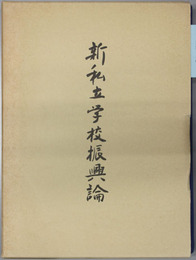 新私立学校振興論